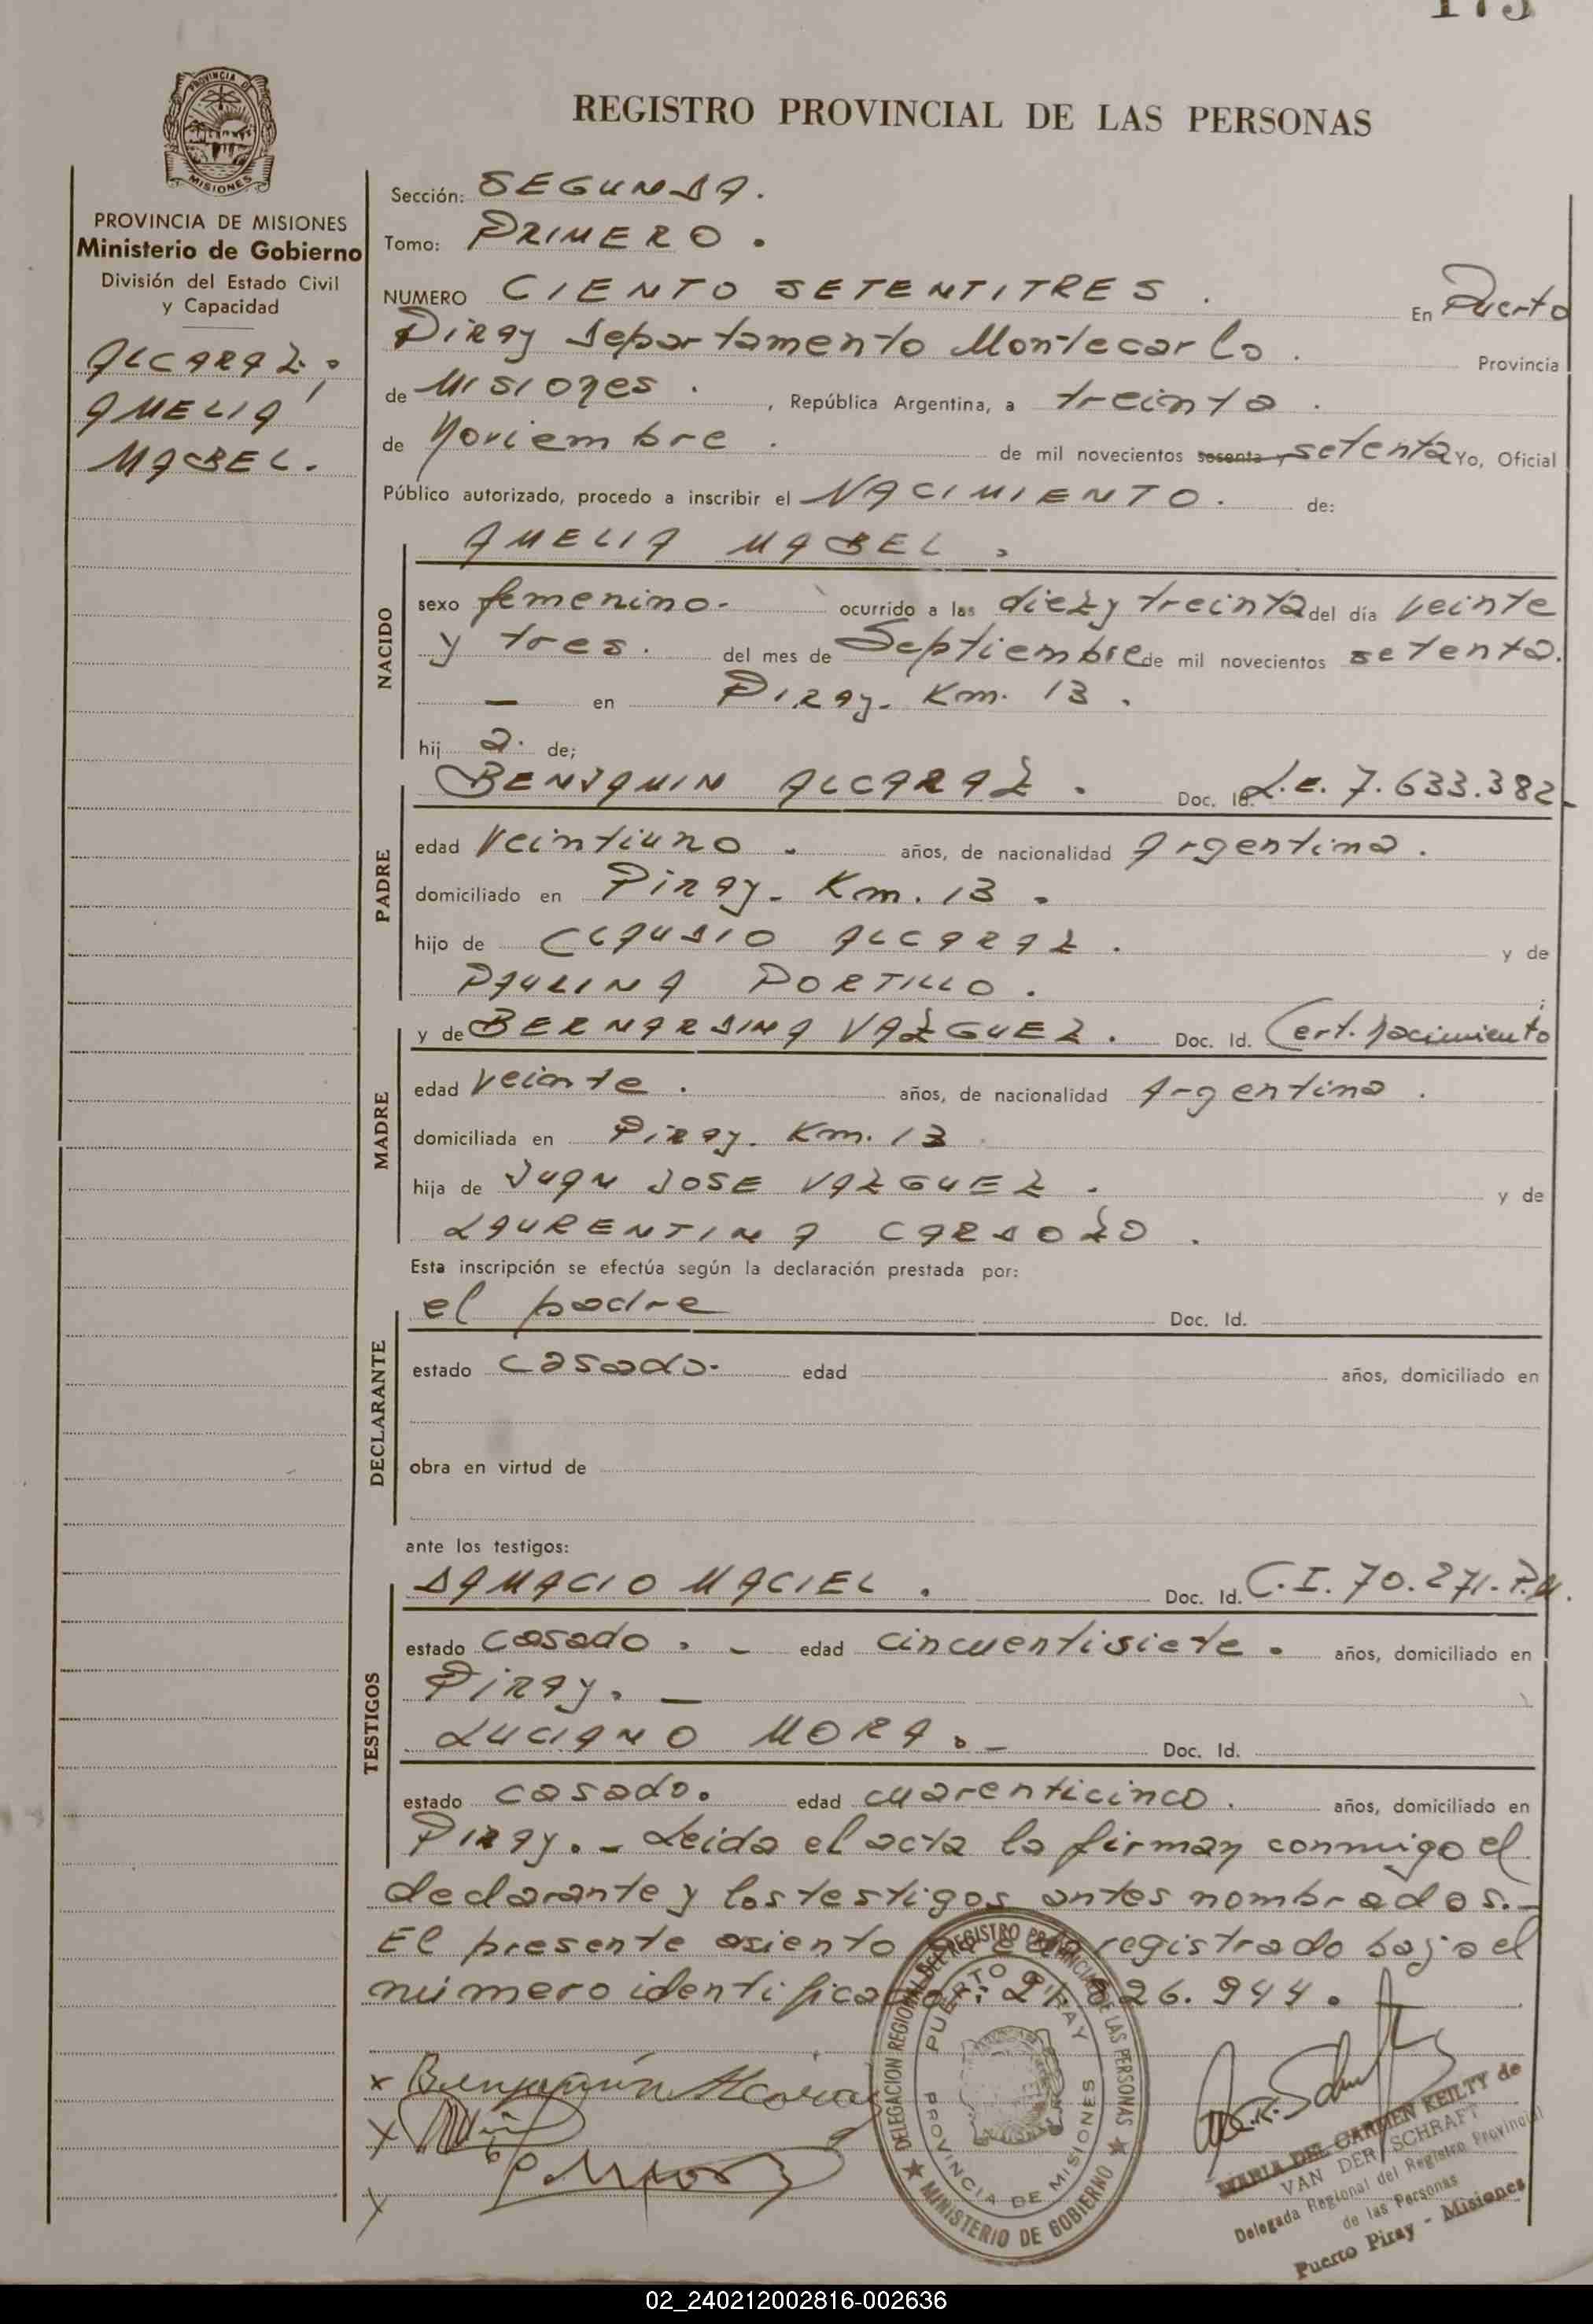 173
PROVINCIA DE
MISIONES
REGISTRO PROVINCIAL DE LAS PERSONAS
PROVINCIA DE MISIONES
Ministerio de Gobierno
División del Estado Civil
y Capacidad
ALCARAZ.;
AMELIA
MABEL.
Sección: SEGUNDA.
Tomo: PRIMERO.
NUMERO CIENTO SETENTITRES. En Puerto
Piray Departamento Montecarlo. Provincia
de Misiones. , República Argentina, a treinta.
de Noviembre. de mil novecientos sesenta y setenta Yo, Oficial
Público autorizado, procedo a inscribir el NACIMIENTO. de:
NACIDO
AMELIA MABEL.
sexo femenino.- ocurrido a las diez y treinta del día veinte
y tres. del mes de Septiembre de mil novecientos setenta.
— en Piray. Km. 13.
hij a. de;
PADRE
BENJAMIN ALCARAZ. Doc. Id. L.E. 7.633.382-
edad veintiuno. años, de nacionalidad Argentina.
domiciliado en Piray. Km. 13.
hijo de CLAUDIO ALCARAZ. y de
PAULINA PORTILLO. ;
MADRE
y de BERNARDINA VAZGUEZ. Doc. Id. Cert. Nacimiento
edad veinte. años, de nacionalidad Argentina.
domiciliada en Piray. Km. 13
hija de JUAN JOSE VAZGUEZ. y de
LAURENTINA CARDOZO.
Esta inscripción se efectúa según la declaración prestada por:
DECLARANTE
el padre Doc. Id.
estado casado. edad años, domiciliado en
obra en virtud de
ante los testigos:
TESTIGOS
DAMACIO MACIEL. Doc. Id. C.I. 70.271.-P.M.
estado casado. - edad cincuentisiete. años, domiciliado en
Piray. —
LUCIANO MORA. - Doc. Id.
estado casado. edad cuarenticinco. años, domiciliado en
Piray. - Leida el acta la firman conmigo el
declarante y los testigos antes nombrados.-
El presente asiento queda registrado bajo el
número identificador: 21.826.944.
x Benjamín Alcaraz
x
x
DELEGACION REGIONAL DEL REGISTRO PROVINCIAL DE LAS PERSONAS
★ MINISTERIO DE GOBIERNO ★
PUERTO PIRAY
PROVINCIA DE MISIONES
MARIA DEL CARMEN KEILTY de
VAN DER SCHRAFT
Delegada Regional del Registro Provincial
de las Personas
Puerto Piray - Misiones
02_240212002816-002636